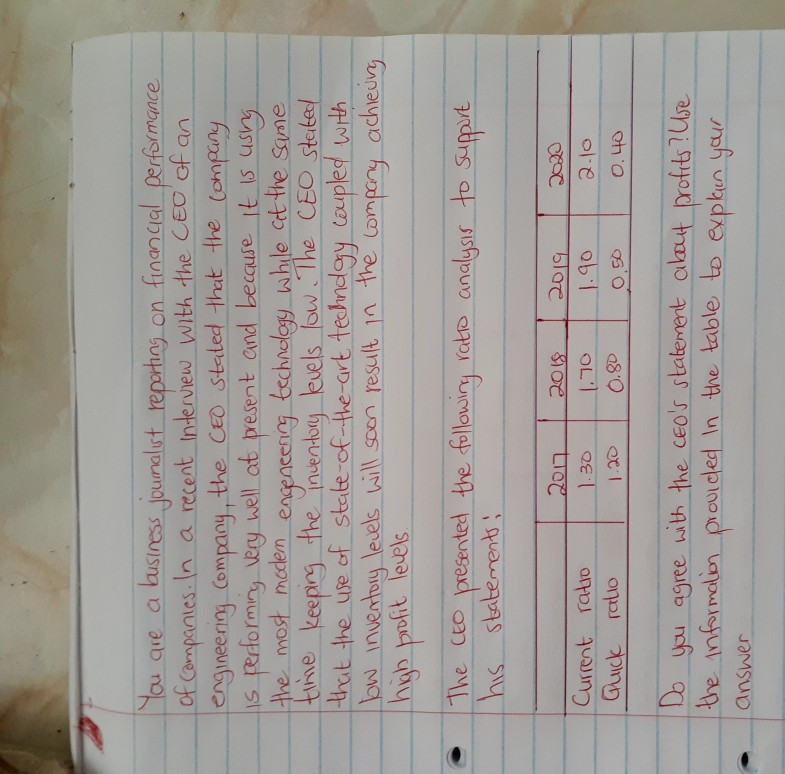 You are a business journalist reporting on financial performance
of companies. In a recent interview with the CEO of an
engineering company, the CEO stated that the company
is performing very well at present and because it is using
the most modern engeneering technology while at the same
time keeping the inventory levels low. The CEO stated
that the use of state-of-the-art technology coupled with
low inventory levels will soon result in the company achieving
high profit levels
The CEO presented the following ratio analysis to support
his statements:
2017 2018 2019 2020
Current ratio 1.30 1.70 1.90 2.10
Quick ratio 1.20 0.80 0.50 0.40
Do you agree with the CEO's statement about profits? Use
the information provided in the table to explain your
answer